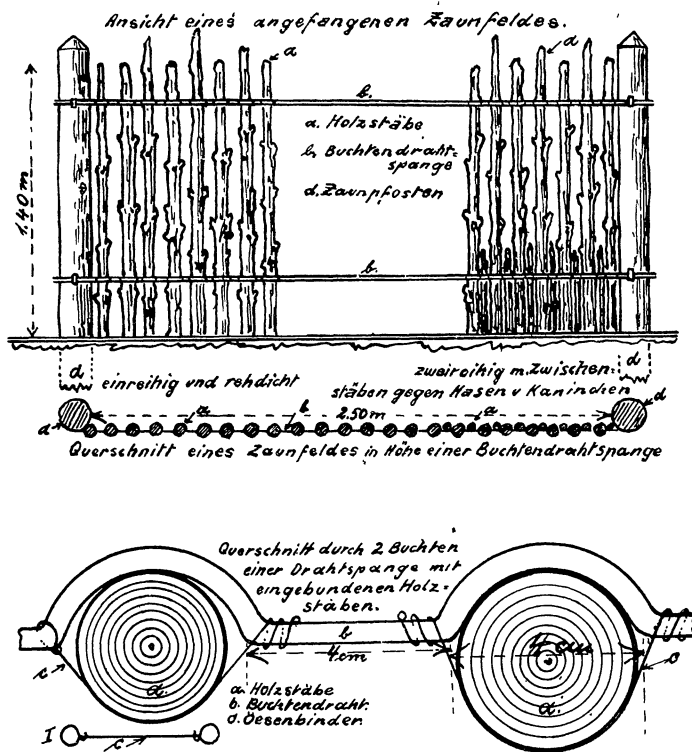 Ansicht eines angefangenen Zaunfeldes.
a
d
b.
a. Holzstäbe
b. Buchtendraht=
spange
d. Zaunpfosten
1.40 m
b.
d
einreihig und rehdicht
zweireihig m. Zwischen=
stäben gegen Hasen u Kaninchen
d
a
b
2.50 m
a
d
d
Querschnitt eines Zaunfeldes in Höhe einer Buchtendrahtspange
Querschnitt durch 2 Buchten
einer Drahtspange mit
eingebundenen Holz=
stäben.
b
4 cm
4 cm
c
a.
a. Holzstäbe
b. Buchtendraht.
c. Oesenbinder.
a.
c
I
c